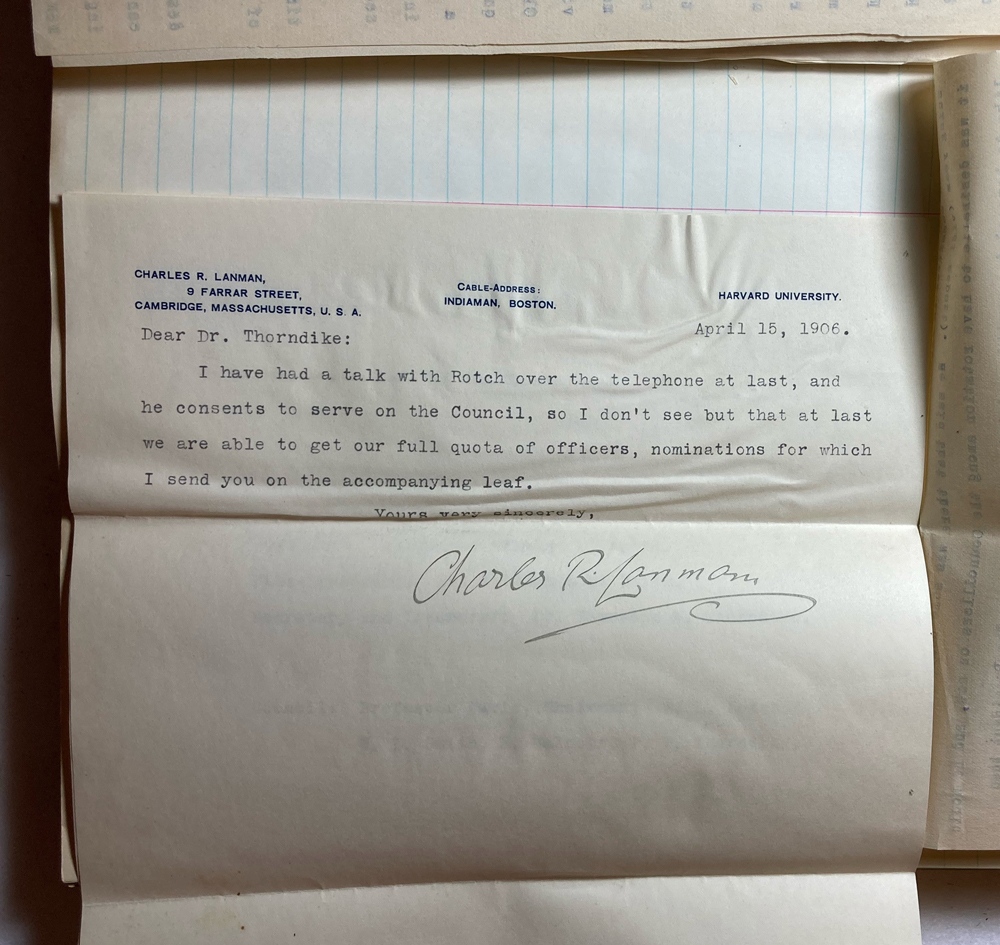 CHARLES R. LANMAN,
9 FARRAR STREET,
CAMBRIDGE, MASSACHUSETTS, U. S. A.
CABLE-ADDRESS:
INDIAMAN, BOSTON.
HARVARD UNIVERSITY.
April 15, 1906.
Dear Dr. Thorndike:
I have had a talk with Rotch over the telephone at last, and
he consents to serve on the Council, so I don't see but that at last
we are able to get our full quota of officers, nominations for which
I send you on the accompanying leaf.
Yours very sincerely,
Charles R. Lanman